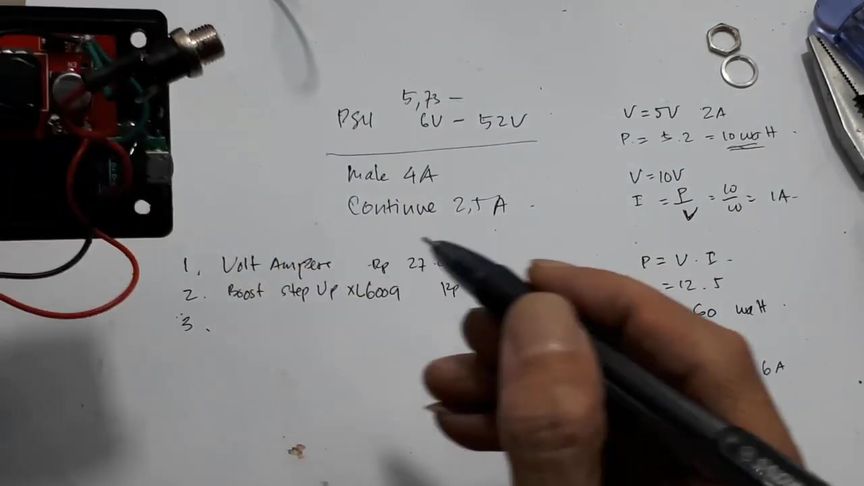 5,73 -
PSU 6V - 52V
Male 4A
Continue 2,5A
1. Volt Ampere Rp 27
2. Boost Step Up XL6009 Rp
3.
V = 5V 2A
P = 5.2 = 10 watt
V = 10V
I = P/V = 10/10 = 1A
P = V . I
= 12.5
60 watt
6A